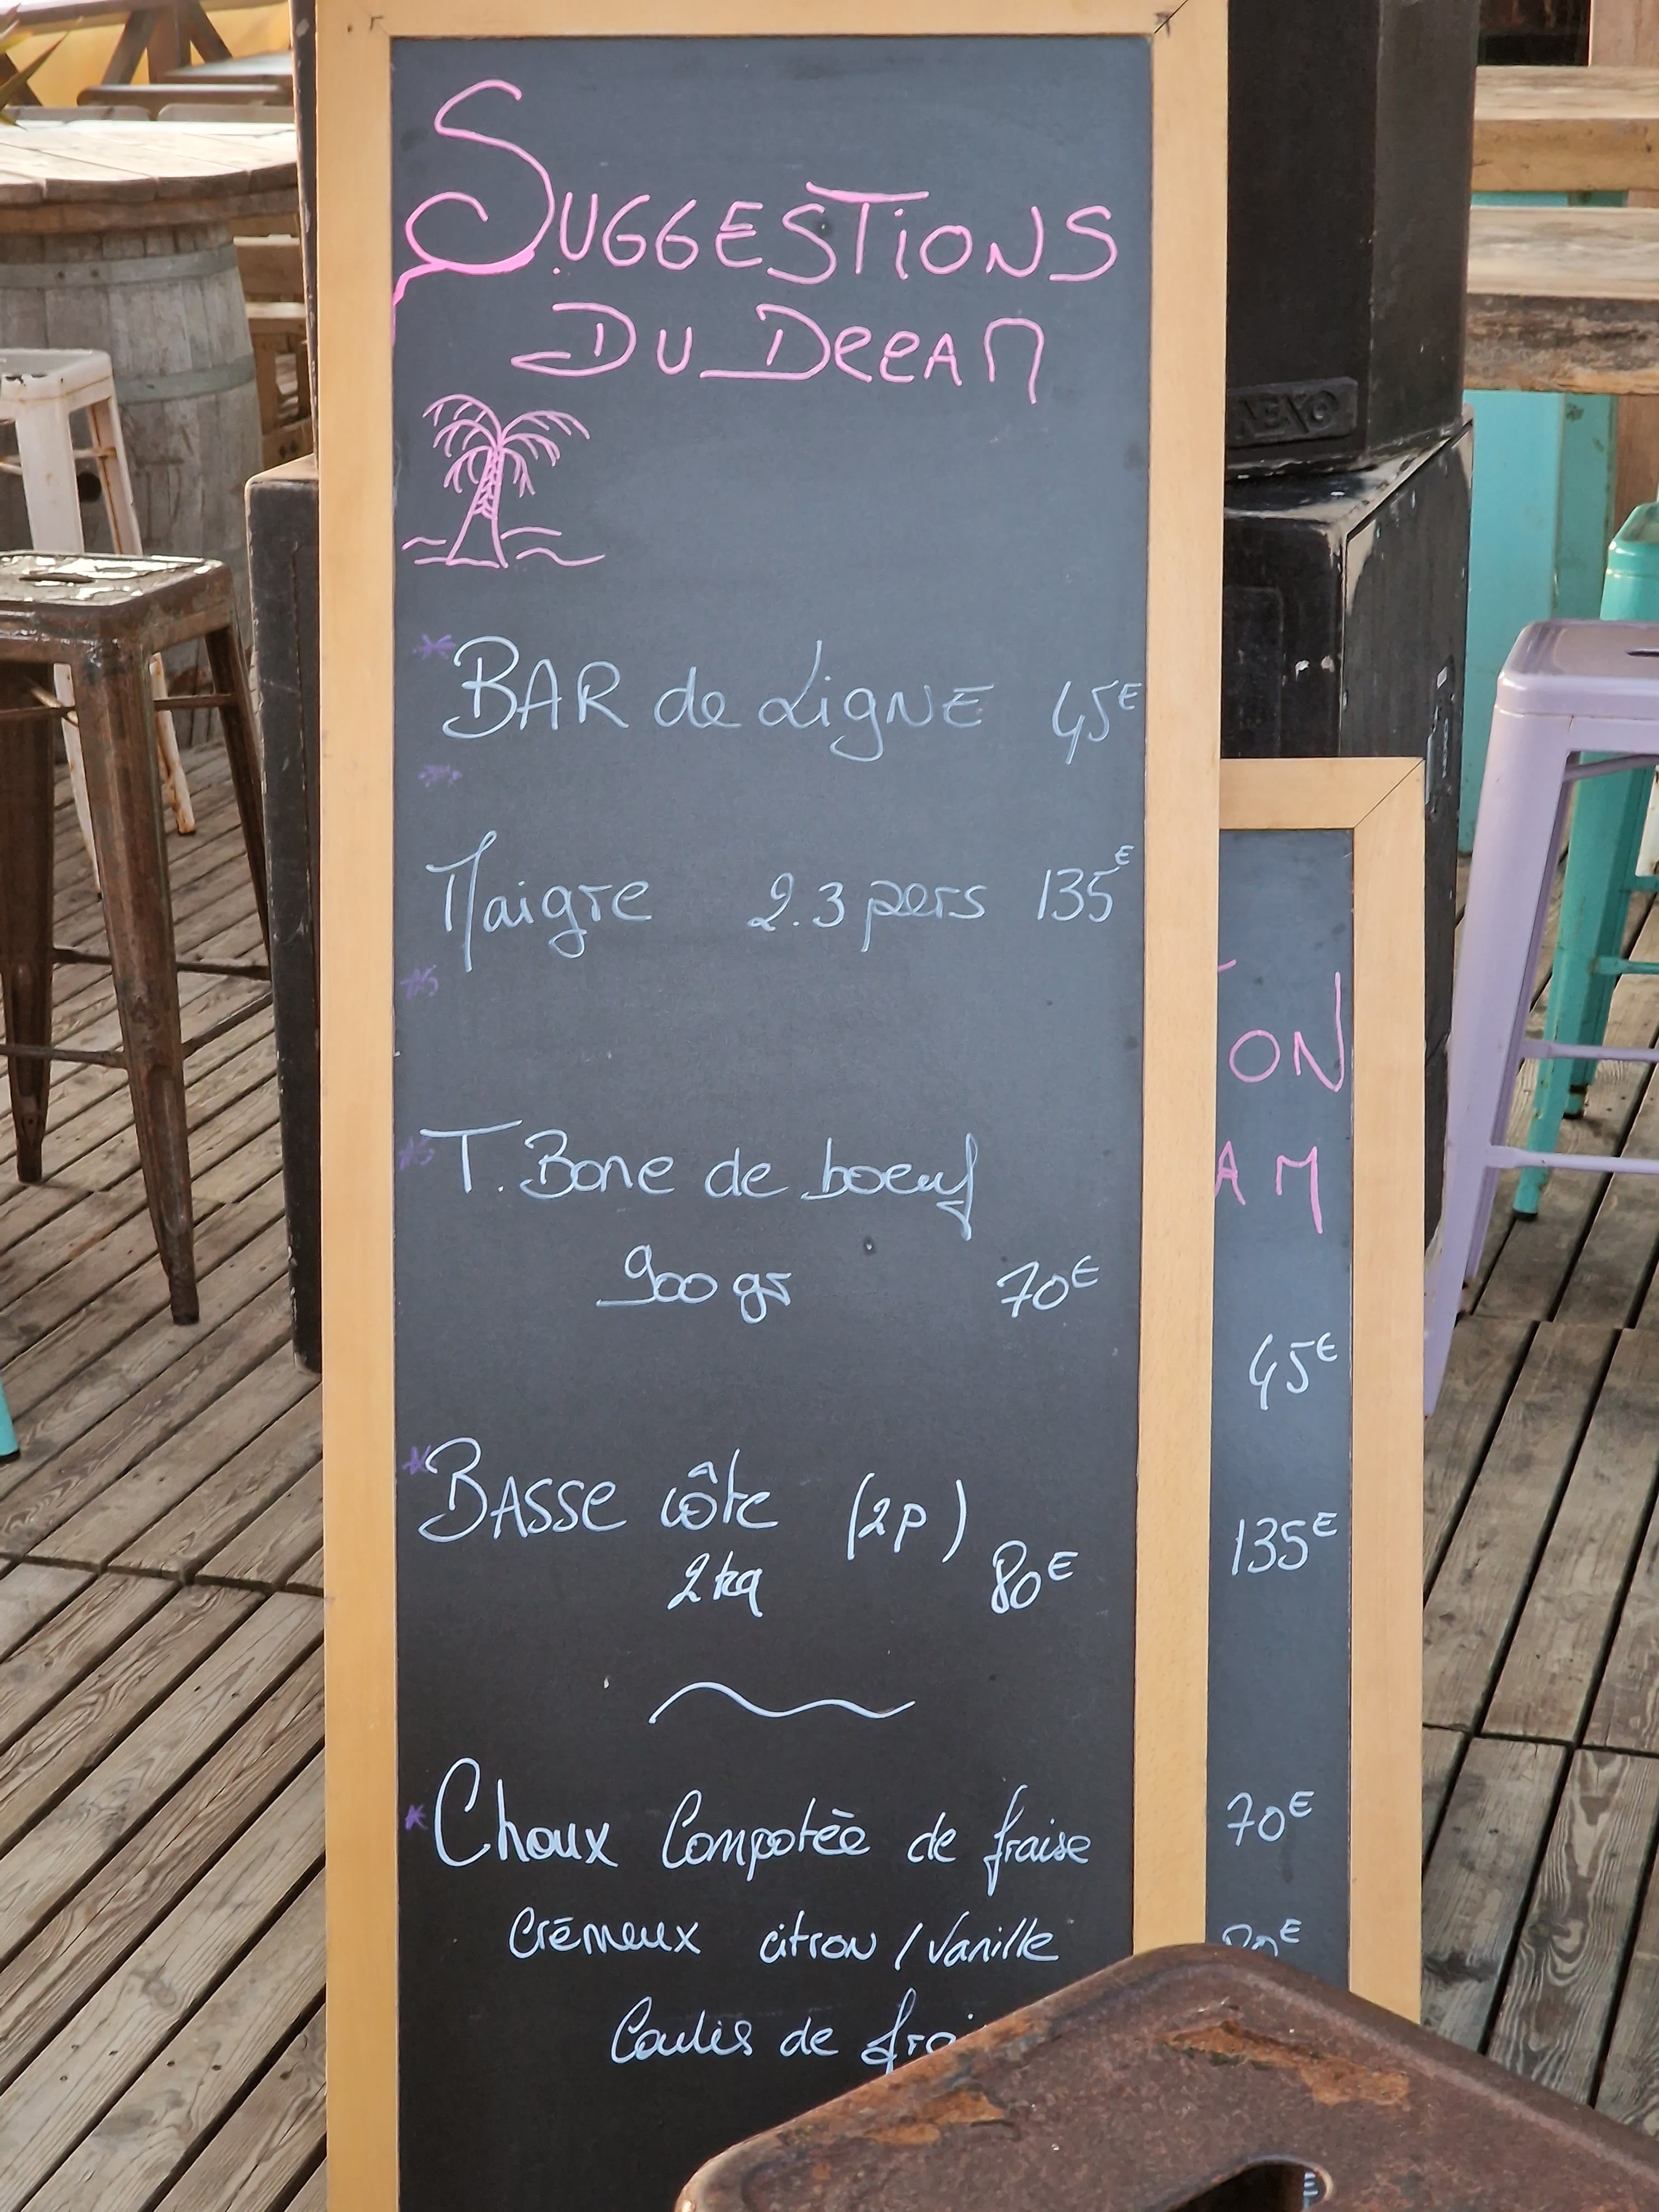 SUGGESTIONS
DU DREAM
BAR de LigNE 45€
Maigre 2.3 pers 135€
T.Bone de boeuf
900 gr 70€
BASSE côte (2p)
2kg 80€
Choux Compotèe de fraise
Crémeux citron / Vanille
Coulis de frai
ON
AM
45€
135€
70€
80€